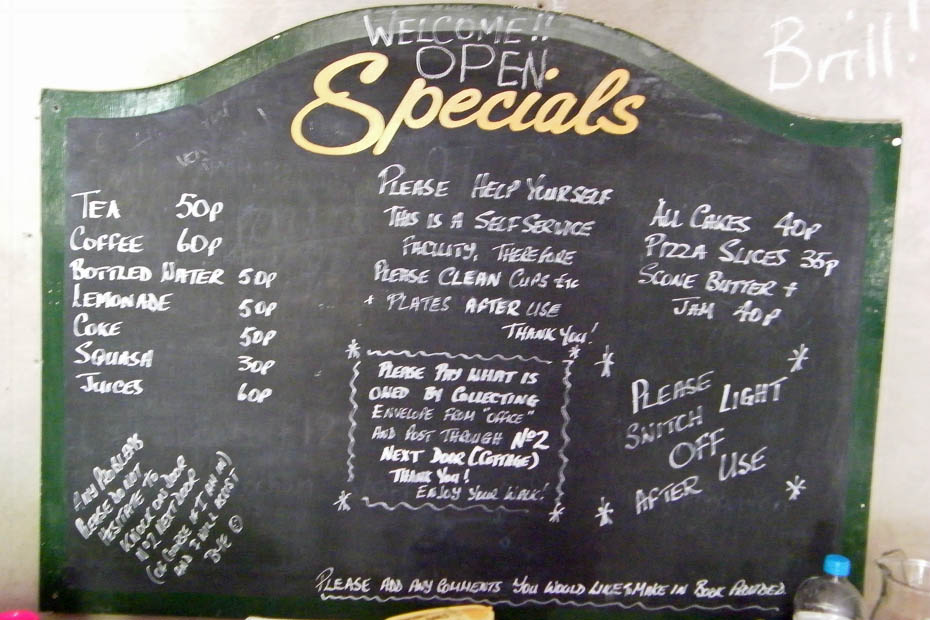 WELCOME!!
OPEN
Brill!
Specials
TEA 50p
COFFEE 60p
BOTTLED WATER 50p
LEMONADE 50p
COKE 50p
SQUASH 30p
JUICES 60p
PLEASE HELP YOURSELF
THIS IS A SELF SERVICE
FACILITY, THEREFORE
PLEASE CLEAN CUPS ETC
+ PLATES AFTER USE
THANK YOU!
ALL CAKES 40p
PIZZA SLICES 35p
SCONE BUTTER +
JAM 40p
PLEASE PAY WHAT IS
OWED BY COLLECTING
ENVELOPE FROM "OFFICE"
AND POST THROUGH Nº2
NEXT DOOR (COTTAGE)
THANK YOU!
ENJOY YOUR WALK!
PLEASE
SWITCH LIGHT
OFF
AFTER USE
ANY PROBLEMS
PLEASE DO NOT
HESITATE TO
KNOCK ON DOOR
Nº2 NEXT DOOR
(OF COURSE IF I AM IN)
AND I WILL ASSIST
PLEASE ADD ANY COMMENTS YOU WOULD LIKE TO MAKE IN BOOK PROVIDED.